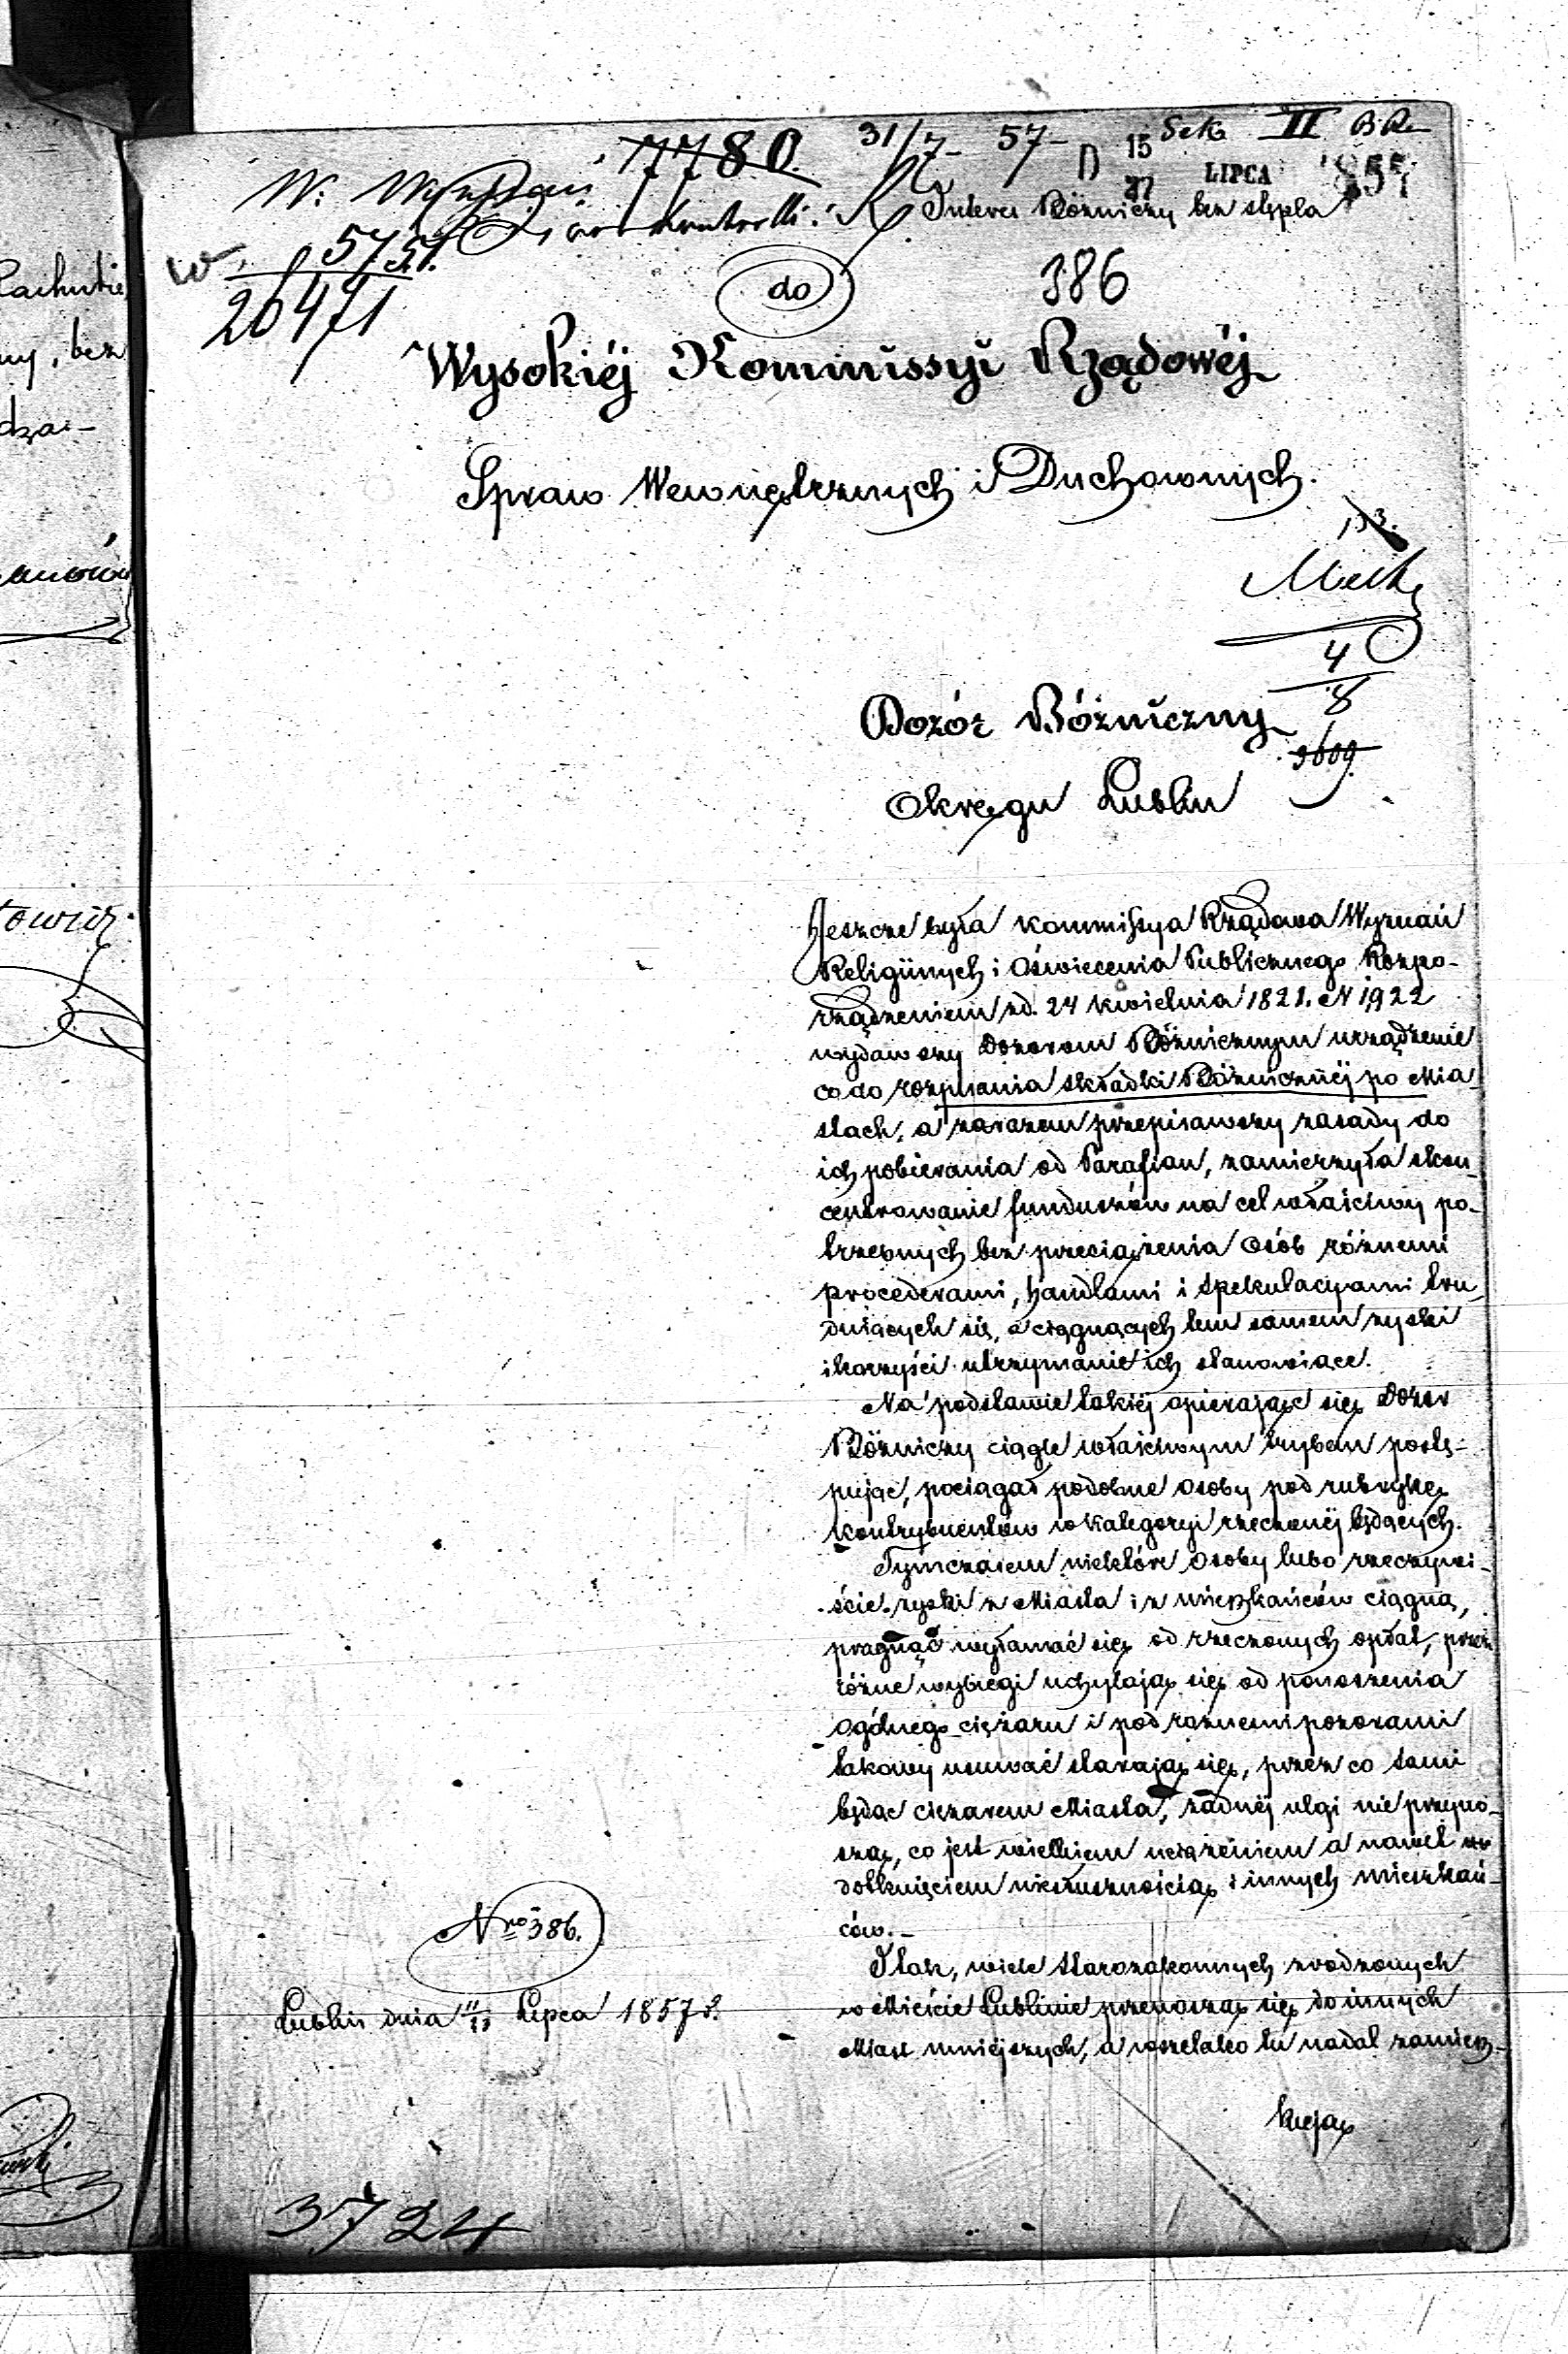 7780. 31/7 57 D 15 Sek II
27 LIPCA 1857
Interes Bóżniczy bez stępla
5751.
26471
do
386
Wysokiéj Kommissyi Rządowéj
Spraw Wewnętrznych i Duchownych.
4
8
Dozór Bóżniczny
Okręgu Lublin
3609.
Jeszcze była Kommissya Rządowa Wyznań
Religiinych i Oświecenia Publicznego Rozpo-
rządzeniem z d. 24 Kwietnia 1821. N 1922
wydawszy Dozorom Bóżnicznym urządzenie
co do rozpisania składki Bóżnicznéj po Mia-
stach, a zarazem przepisawszy zasady do
ich pobierania od Parafian, zamierzyła skon-
centrowanie funduszów na cel właściwy po-
trzebnych bez przeciążenia osób różnemi
procederami, handlami i spekulacyami tru-
dniących się, a ciągnących tem samem zyski
i korzyści utrzymanie ich stanowiące.
Na podstawie takiéj opierając się Dozór
Bóżniczy ciągle właściwym trybem postę-
pując, pociągał podobne osoby pod rubrykę
kontrybuentów w kategoryi rzeczonéj będących.
Tymczasem niektóre osoby lubo rzeczywi-
ście zyski z Miasta i z mieszkańców ciągną,
pragnąc wyłamać się od rzeczonych opłat, przez
różne wybiegi uchylają się od ponoszenia
ogólnego ciężaru i pod roznemi pozorami
takowy usuwać starają się, przez co sami
będąc ciężarem Miasta, żadnéj ulgi nie przyno-
szą, co jest wielkiem uciążeniem a nawet
dotknięciem niesłusznością i innych mieszkań-
ców.-
I tak, wiele starozakonnych zrodzonych
w Mieście Lublinie przenoszą się do innych
Miast mniéjszych, a wszelako tu nadal zamiesz-
kują
Nro 386.
Lublin dnia Lipca 1857 r.
3724